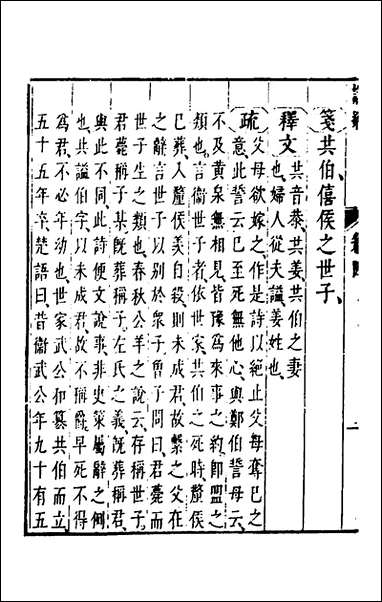 箋共伯僖侯之世子、
釋文
共音恭、共姜共伯之妻
也、婦人從夫謚姜姓也、
疏
父母欲嫁之、作是詩以絕止父母奪己之
意、此誓云己至死無他心、與鄭伯誓母云、
不及黃泉無相見、皆豫爲來事之約、即盟之
類也、言衞世子者、依世家共伯之死時釐侯
已葬、入釐侯羨自殺、則未成君、故繫之父在
之辭、言世子以別於衆子、曾子問曰、君薨而
世子生之類也、春秋公羊之說云、存稱世子、
君薨稱子某、旣葬稱子、左氏之義、旣葬稱君、
與此不同、此詩便文說事、非史策屬辭之例
也、共謚伯字、以未成君、故不稱爵、早死不得
爲君、不必年幼也、世家武公和篡共伯而立、
五十五年卒、楚語曰、昔衞武公年九十有五